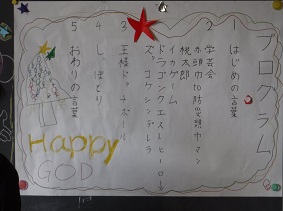 プログラム
1 はじめの言葉
2 学芸会
赤頭巾to防災頭巾マン
桃太郎
イカゲーム
ドラゴンクエストヒーロー
3 王様ドッチボール
4 しっぽとり
5 おわりの言葉
Happy
GOD